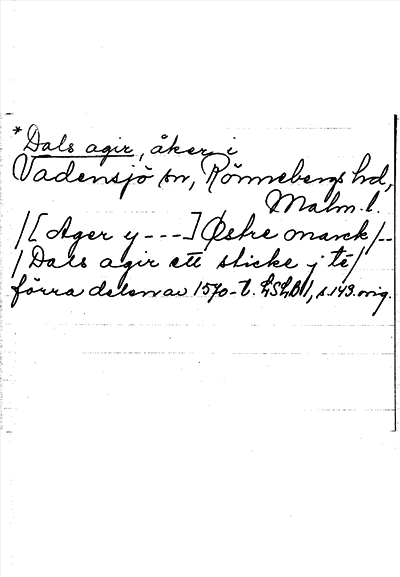 *Dals agir, åker i
Vadensjö sn, Rönnebergs hd,
Malm. l.
/[Ager y ---] Østre marck/--
/Dals agir ett sticke j te/
förra delen av 1570-t. LSLB 1, s. 143. orig.